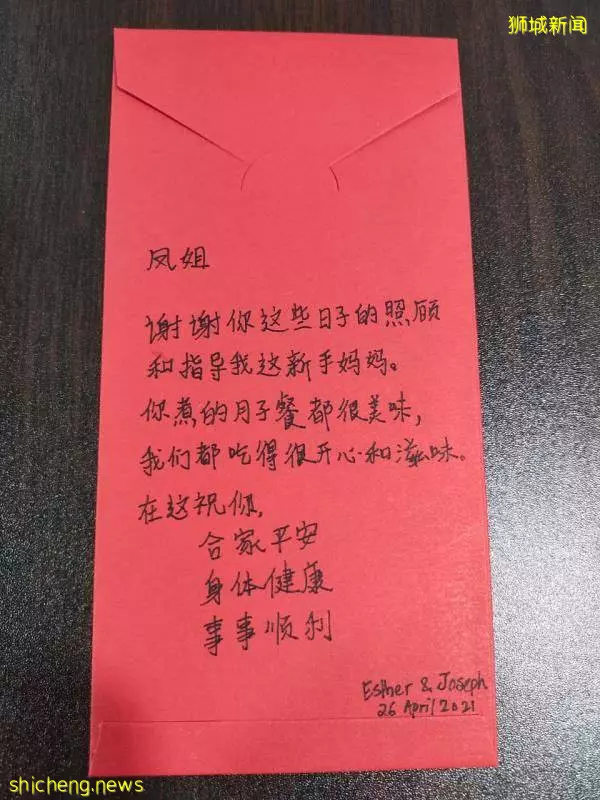 狮城新闻
凤姐
谢谢你这些日子的照顾
和指导我这新手妈妈。
你煮的月子餐都很美味,
我们都吃得很开心和滋味。
在这祝你,
合家平安
身体健康
事事顺利
Esther & Joseph
26 April 2021
shicheng.news